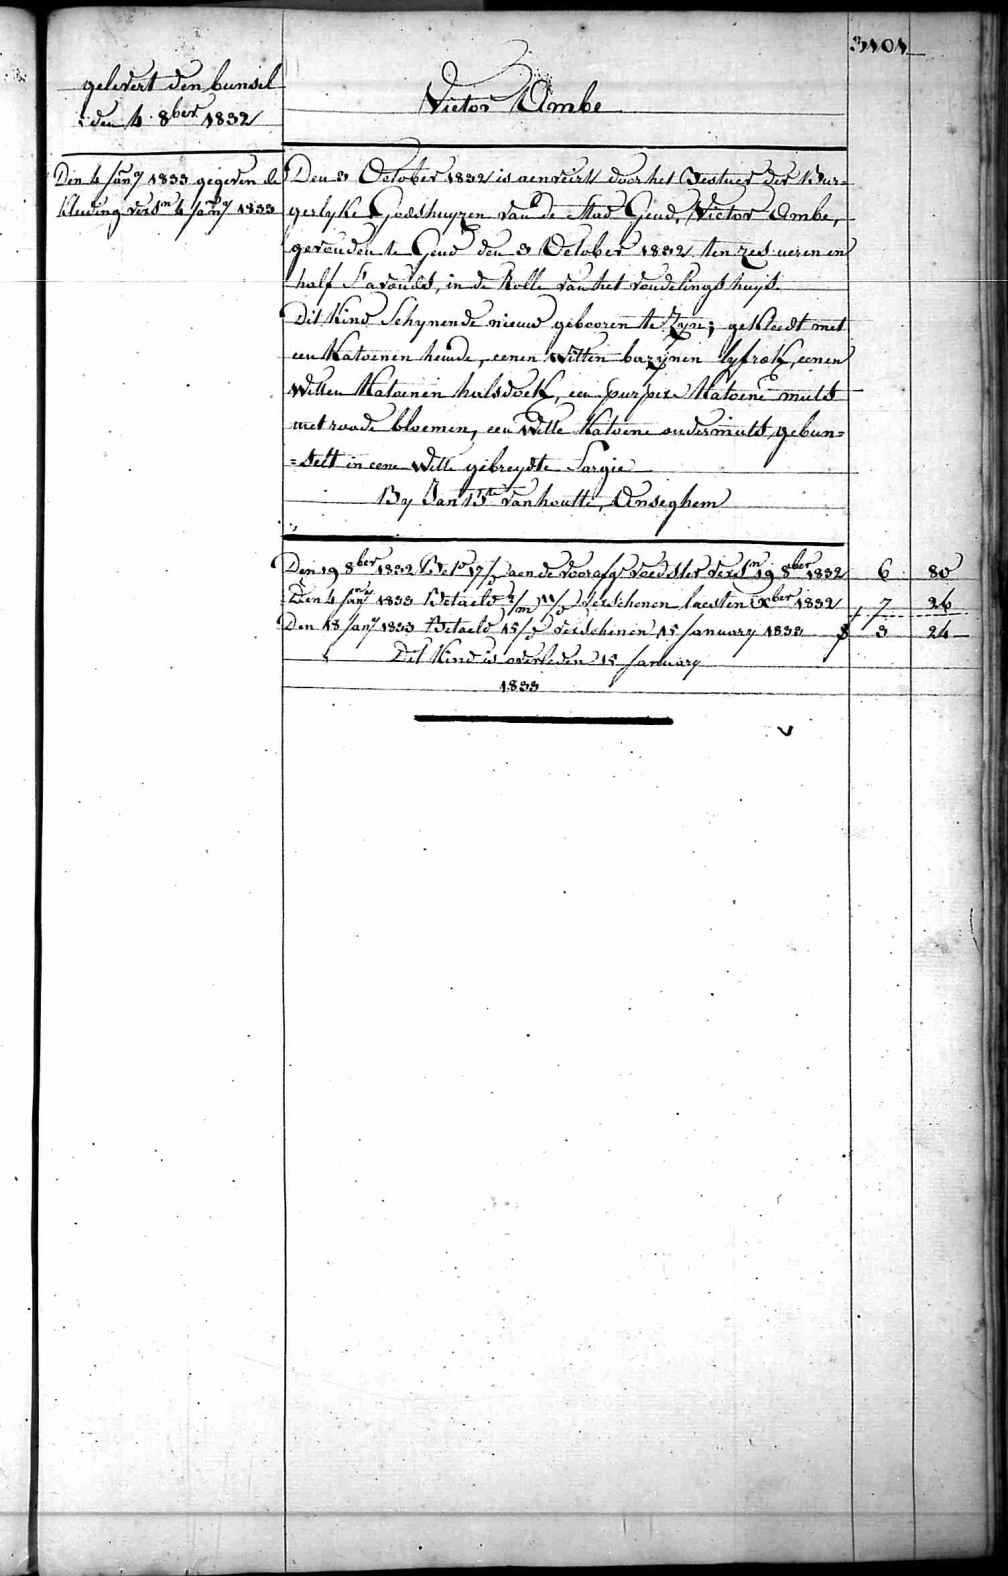 3101
gelevert den bunsel
den 4 8ber 1832
Victor Ambe
Den 4 Jany 1833 gegeven de
Kleeding versn 4 Jany 1833
Den 3 October 1832 is aenveirt door het Bestuer der Bur=
gerlyke Godshuyzen van de Stad Gend, Victor Ambe,
gevonden te Gend den 3 October 1832 ten zes ueren en
half S'avonds, in de Rolle van het vondelings huys.
Dit Kind Schynende nieuw gebooren te Zyn; gekleedt met
een Katoenen hemde, eenen Witten bazynen lyfrok, eenen
Witten Katoenen halsdoek, een purper Katoene muts
met roode bloemen, een Witte Katoene ondermuts, gebun=
=selt in eene Witte gebreydte Sargie
By Jan Bte vanhoutte, Anseghem
Den 19 8ber 1832 17/ aen de voorafge voedster versn 19 8ber 1832 6 80
Den 4 Jany 1833 Betaeld 2/m 11/ verschenen laesten Xber 1832 7 26
Den 18 Jany 1833 Betaeld 15/ verschenen 15 January 1833 3 24
Dit Kind is overleden 15 January
1833